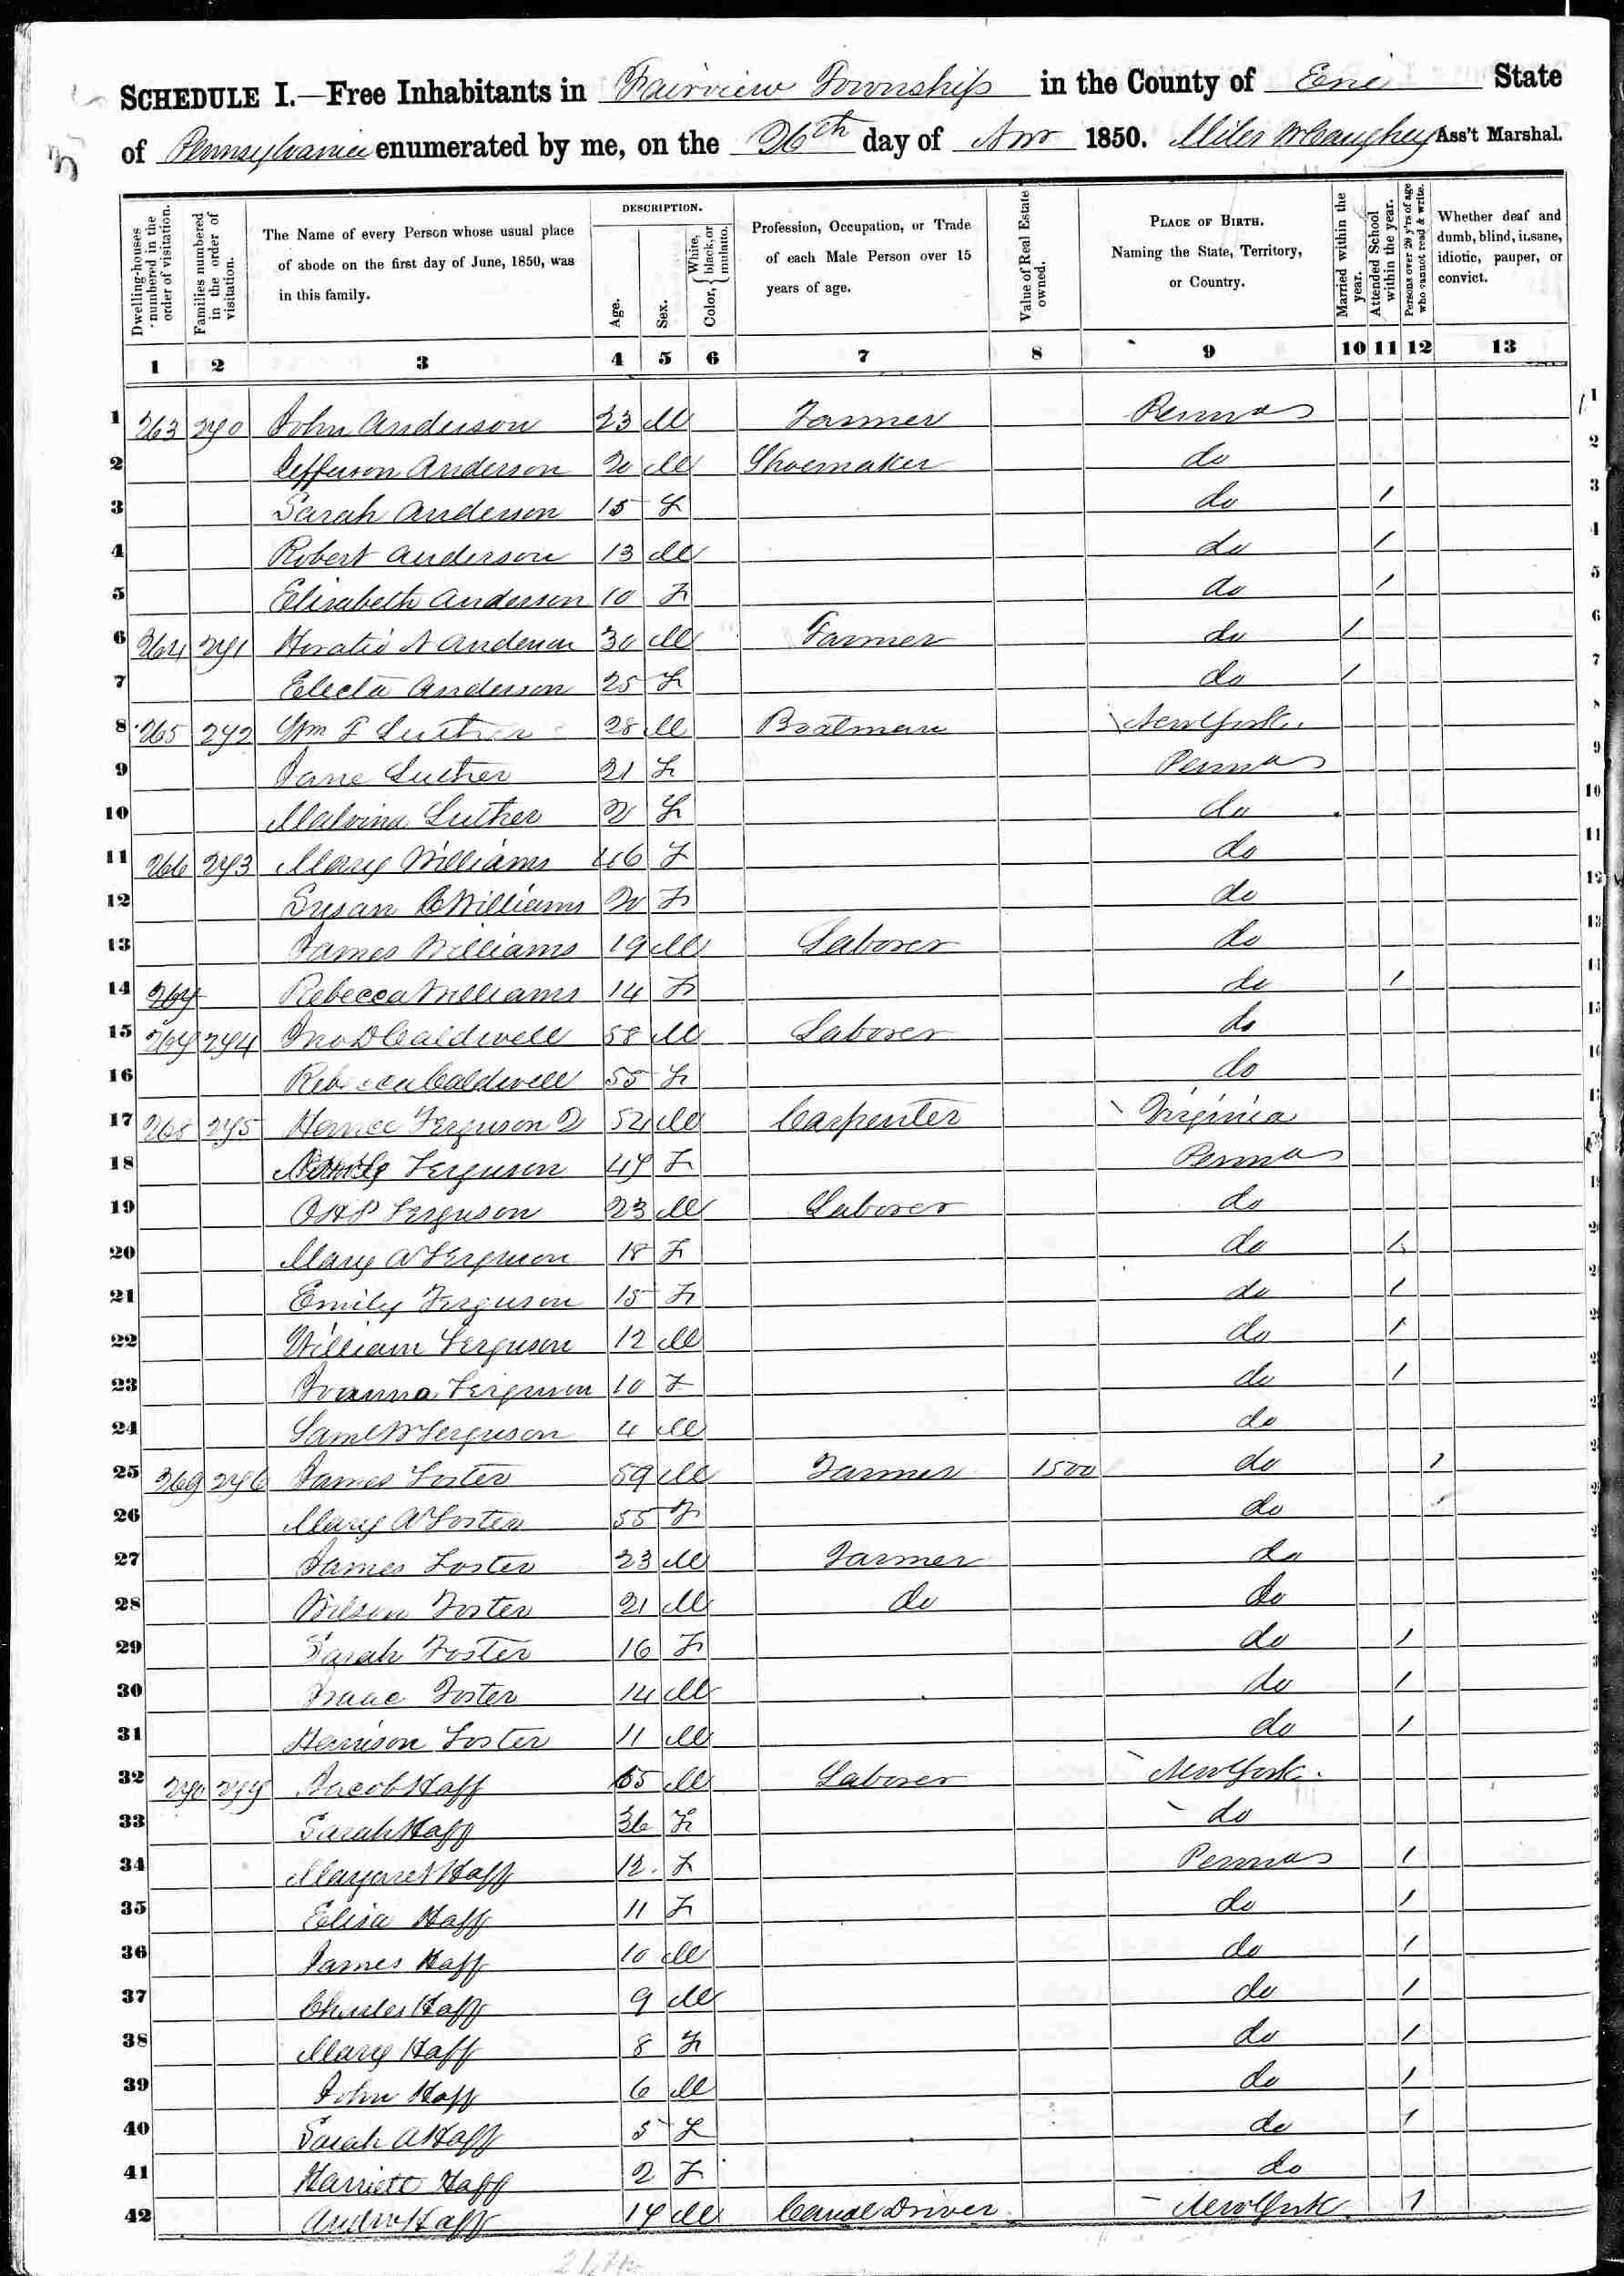 SCHEDULE I.—Free Inhabitants in Fairview Township in the County of Erie State
of Pennsylvania enumerated by me, on the 26th day of Nov 1850. Miles McCaughey Ass't Marshal.
Dwelling-houses numbered in the order of visitation.
Families numbered in the order of visitation.
The Name of every Person whose usual place of abode on the first day of June, 1850, was in this family.
DESCRIPTION.
Age.
Sex.
Color, { White, black, or mulatto.
Profession, Occupation, or Trade of each Male Person over 15 years of age.
Value of Real Estate owned.
PLACE OF BIRTH. Naming the State, Territory, or Country.
Married within the year.
Attended School within the year.
Persons over 20 y'rs of age who cannot read & write.
Whether deaf and dumb, blind, insane, idiotic, pauper, or convict.
1 2 3 4 5 6 7 8 9 10 11 12 13
1 263 270 John Anderson 23 M Farmer Penna 1
2 Jefferson Anderson 20 M Shoemaker do 2
3 Sarah Anderson 15 F do 1 3
4 Robert Anderson 13 M do 1 4
5 Elisabeth Anderson 10 F do 1 5
6 264 271 Horatio N Anderson 30 M Farmer do 1 6
7 Electa Anderson 25 F do 1 7
8 265 272 Wm Luther 28 M Boatman New York 8
9 Jane Luther 21 F Penna 9
10 Malvina Luther 2 F do 10
11 266 273 Mary Williams 46 F do 11
12 Susan C Williams 20 F do 12
13 James Williams 19 M Laborer do 13
14 267 Rebecca Williams 14 F do 1
15 267 274 Jno D Caldwell 58 M Laborer do
16 Rebecca Caldwell 55 F do
17 268 275 Ferguson 52 M Carpenter Virginia
18 Ferguson 47 F Penna
19 O H P Ferguson 23 M Laborer do
20 Mary A Ferguson 18 F do 1
21 Emily Ferguson 15 F do 1
22 William Ferguson 12 M do 1
23 Joanna Ferguson 10 F do 1
24 Saml W Ferguson 4 M do
25 269 276 James Foster 59 M Farmer 1500 do 1
26 Mary A Foster 55 F do
27 James Foster 23 M Farmer do
28 Wilson Foster 21 M do do
29 Sarah Foster 16 F do 1
30 Isaac Foster 14 M do 1
31 Harrison Foster 11 M do 1
32 270 277 Jacob Haff 65 M Laborer New York
33 Sarah Haff 36 F do
34 Margaret Haff 12 F Penna 1
35 Elisa Haff 11 F do 1
36 James Haff 10 M do 1
37 Charles Haff 9 M do 1
38 Mary Haff 8 F do 1
39 John Haff 6 M do 1
40 Sarah A Haff 5 F do 1
41 Harriett Haff 2 F do
42 Andrw Haff 17 M Canal Driver New York 1